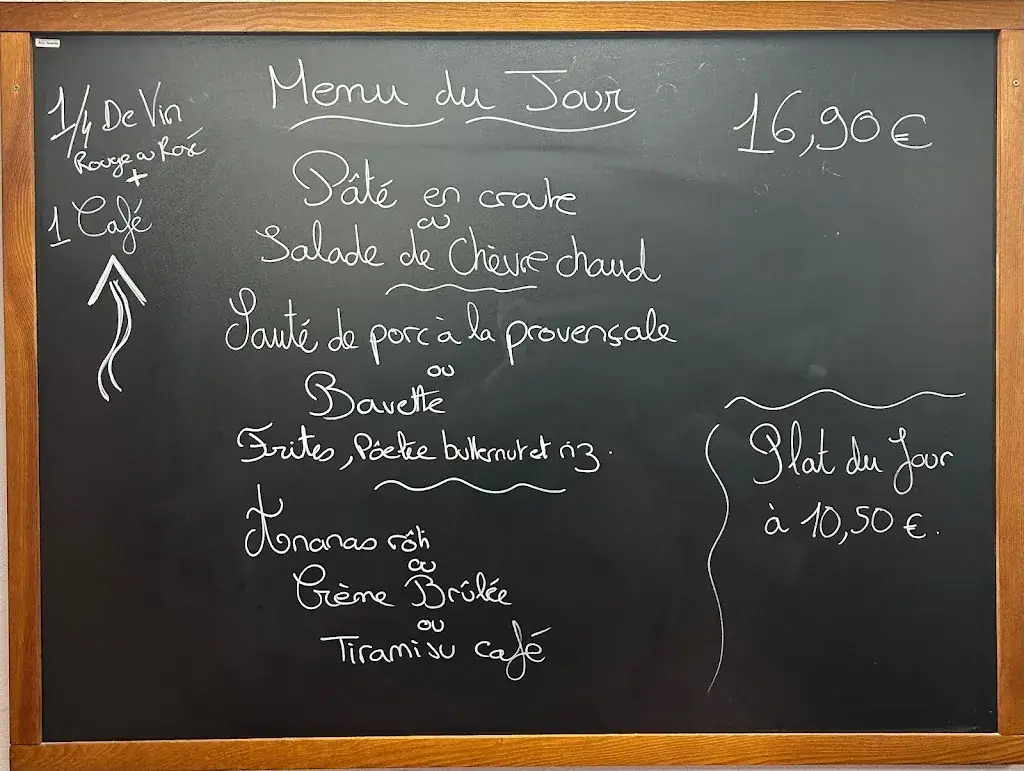 Menu du Jour
16,90€
1/4 De Vin
Rouge ou Rosé
+
1 Café
Pâté en croute
ou
Salade de Chèvre chaud
Sauté de porc à la provençale
ou
Bavette
Frites, Pôelée butternut et riz.
Ananas rôti
ou
Crème Brûlée
ou
Tiramisu café
Plat du Jour
à 10,50 €.